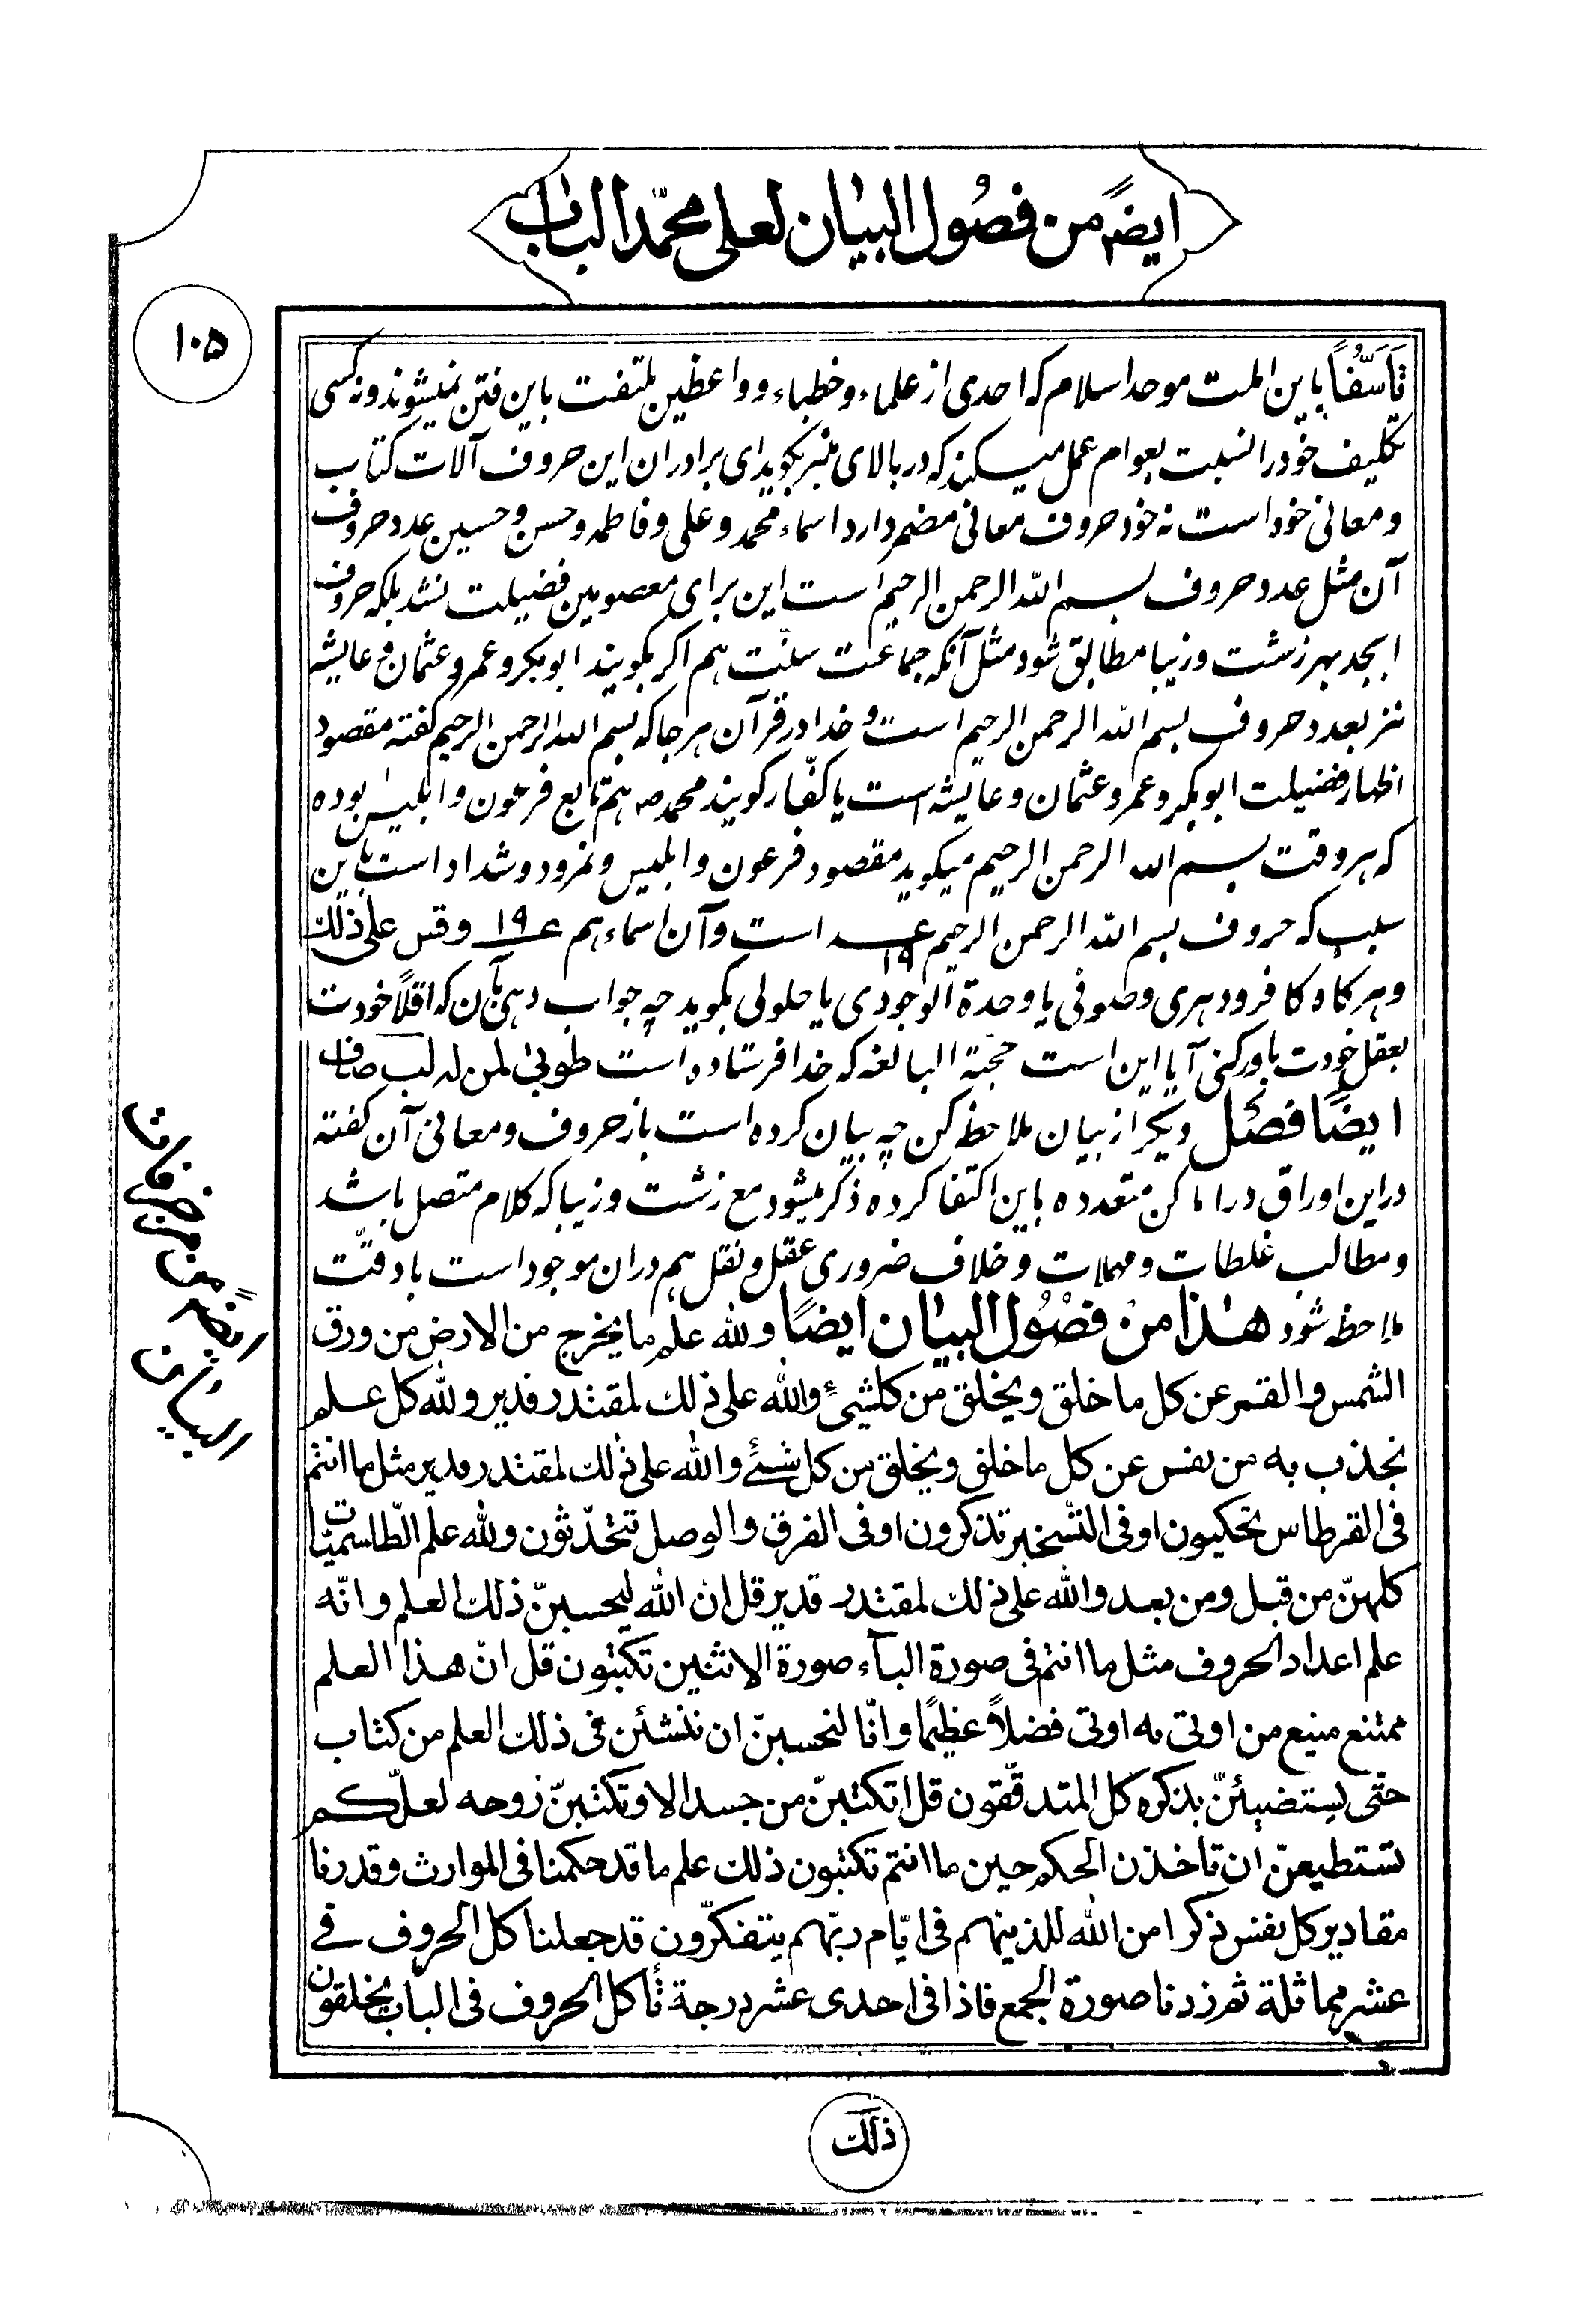 ایضًا من فصُول البیان لعلی محمّد الباب
١٠۵
تَاَسَّفُاً باین املت موحد اسلام که احدی از علماء و خطباء و واعظین ملتفت باین فتن نمیشوند و نه کسی
تکلیف خود را نسبت بعوام عمل میکند که در بالای منبر بگوید ای برادران این حروف آلات کتاب
و معانی خود است نه خود حروف معانی مضمر دارد اسماء محمد و علی و فاطمه و حسن و حسین عدد حروف
آن مثل عدد حروف بسم الله الرحمن الرحیم است این برای معصومین فضیلت نشد بلکه حروف
ابجد بهر زشت و زیبا مطابق شود مثل آنکه جماعت سنّت هم اکر بکویند ابوبکر و عمر و عثمان و عایشه
نیز بعدد حروف بسم الله الرحمن الرحیم است و خدا در قرآن هر جا که بسم الله الرحمن الرحیم کفته مقصود
اظهار فضیلت ابوبکر و عمر و عثمان و عایشه است یا کفّار کویند محمد صه هم تابع فرعون و ابلیس بوده
که هر وقت بسم الله الرحمن الرحیم میکوید مقصود فرعون و ابلیس و نمرود و شداد است باین
سبب که حروف بسم الله الرحمن الرحیم عـــد ١٩ است و آن اسماء هم عـ ١٩ و قس علی ذلک
و هر کاه کافر و دهری و صوفی یا وحدة الوجودی یا حلولی بکوید چه جواب دهی بآن که اقلاً خودت
بعقل خودت باور کنی آیا این است حجّة البالغه که خدا فرستاده است طوبی لمن له لب صاف
ایضًا فصل دیکر از بیان ملاحظه کن چه بیان کرده است باز حروف و معانی آن کفته
در این اوراق در اماکن متعدده باین اکتفا کرده ذکر میشود مع زشت و زیبا که کلام متصل باشد
و مطالب غلطات و مهملات و خلاف ضروری عقل و نقل هم در ان موجود است با دقّت
ملاحظه شود هٰذا منْ فصُول البیان ایضًا و لله علم ما یخرج من الارض من ورق
الشمس و القمر عن کل ما خلق و یخلق من کلشیءٍ و الله علی ذلک لمقتدر قدیر و لله کل علم
نجذب به من نفس عن کل ما خلق و یخلق من کل شئءٍ و الله علی ذلک لمقتدر قدیر مثل ما انتم
فی القرطاس تحکیون او فی التسخیر تذکرون او فی الفرق و الوصل تتحدّثون و لله علم الطّلسمیّات
کلهنّ من قبل و من بعد و الله علی ذلک لمقتدر قدیر قل ان الله لیحسبنّ ذلک العلم و انّه
علم اعداد الحروف مثل ما انتم فی صورة البآء صورة الاثنین تکتبون قل انّ هذا العلم
ممتنع منیع من اوتی به اوتی فضلاً عظیمًا و انّا لنحسبنّ ان ننشئن فی ذلک العلم من کتاب
حتّی یستضیئنّ بذکره کل المتدقّقون قل لا تکتبنّ من جسد الا و تکتبنّ زوحه لعلّکم
تستطیعنّ ان تاخذن الحکم حین ما انتم تکتبون ذلک علم ما قد حکمنا فی الموارث و قدرنا
مقادیر کل نفس ذکرا من الله للذینهم فی ایّام ربّهم یتفکّرون قد جعلنا کل الحروف فے
عشر مماثلة ثم زدنا صورة الجمع فاذا فی احدی عشر درجة تأکل الحروف فی الباب یخلقون
ایضًا من خرافات
البیان
ذلک